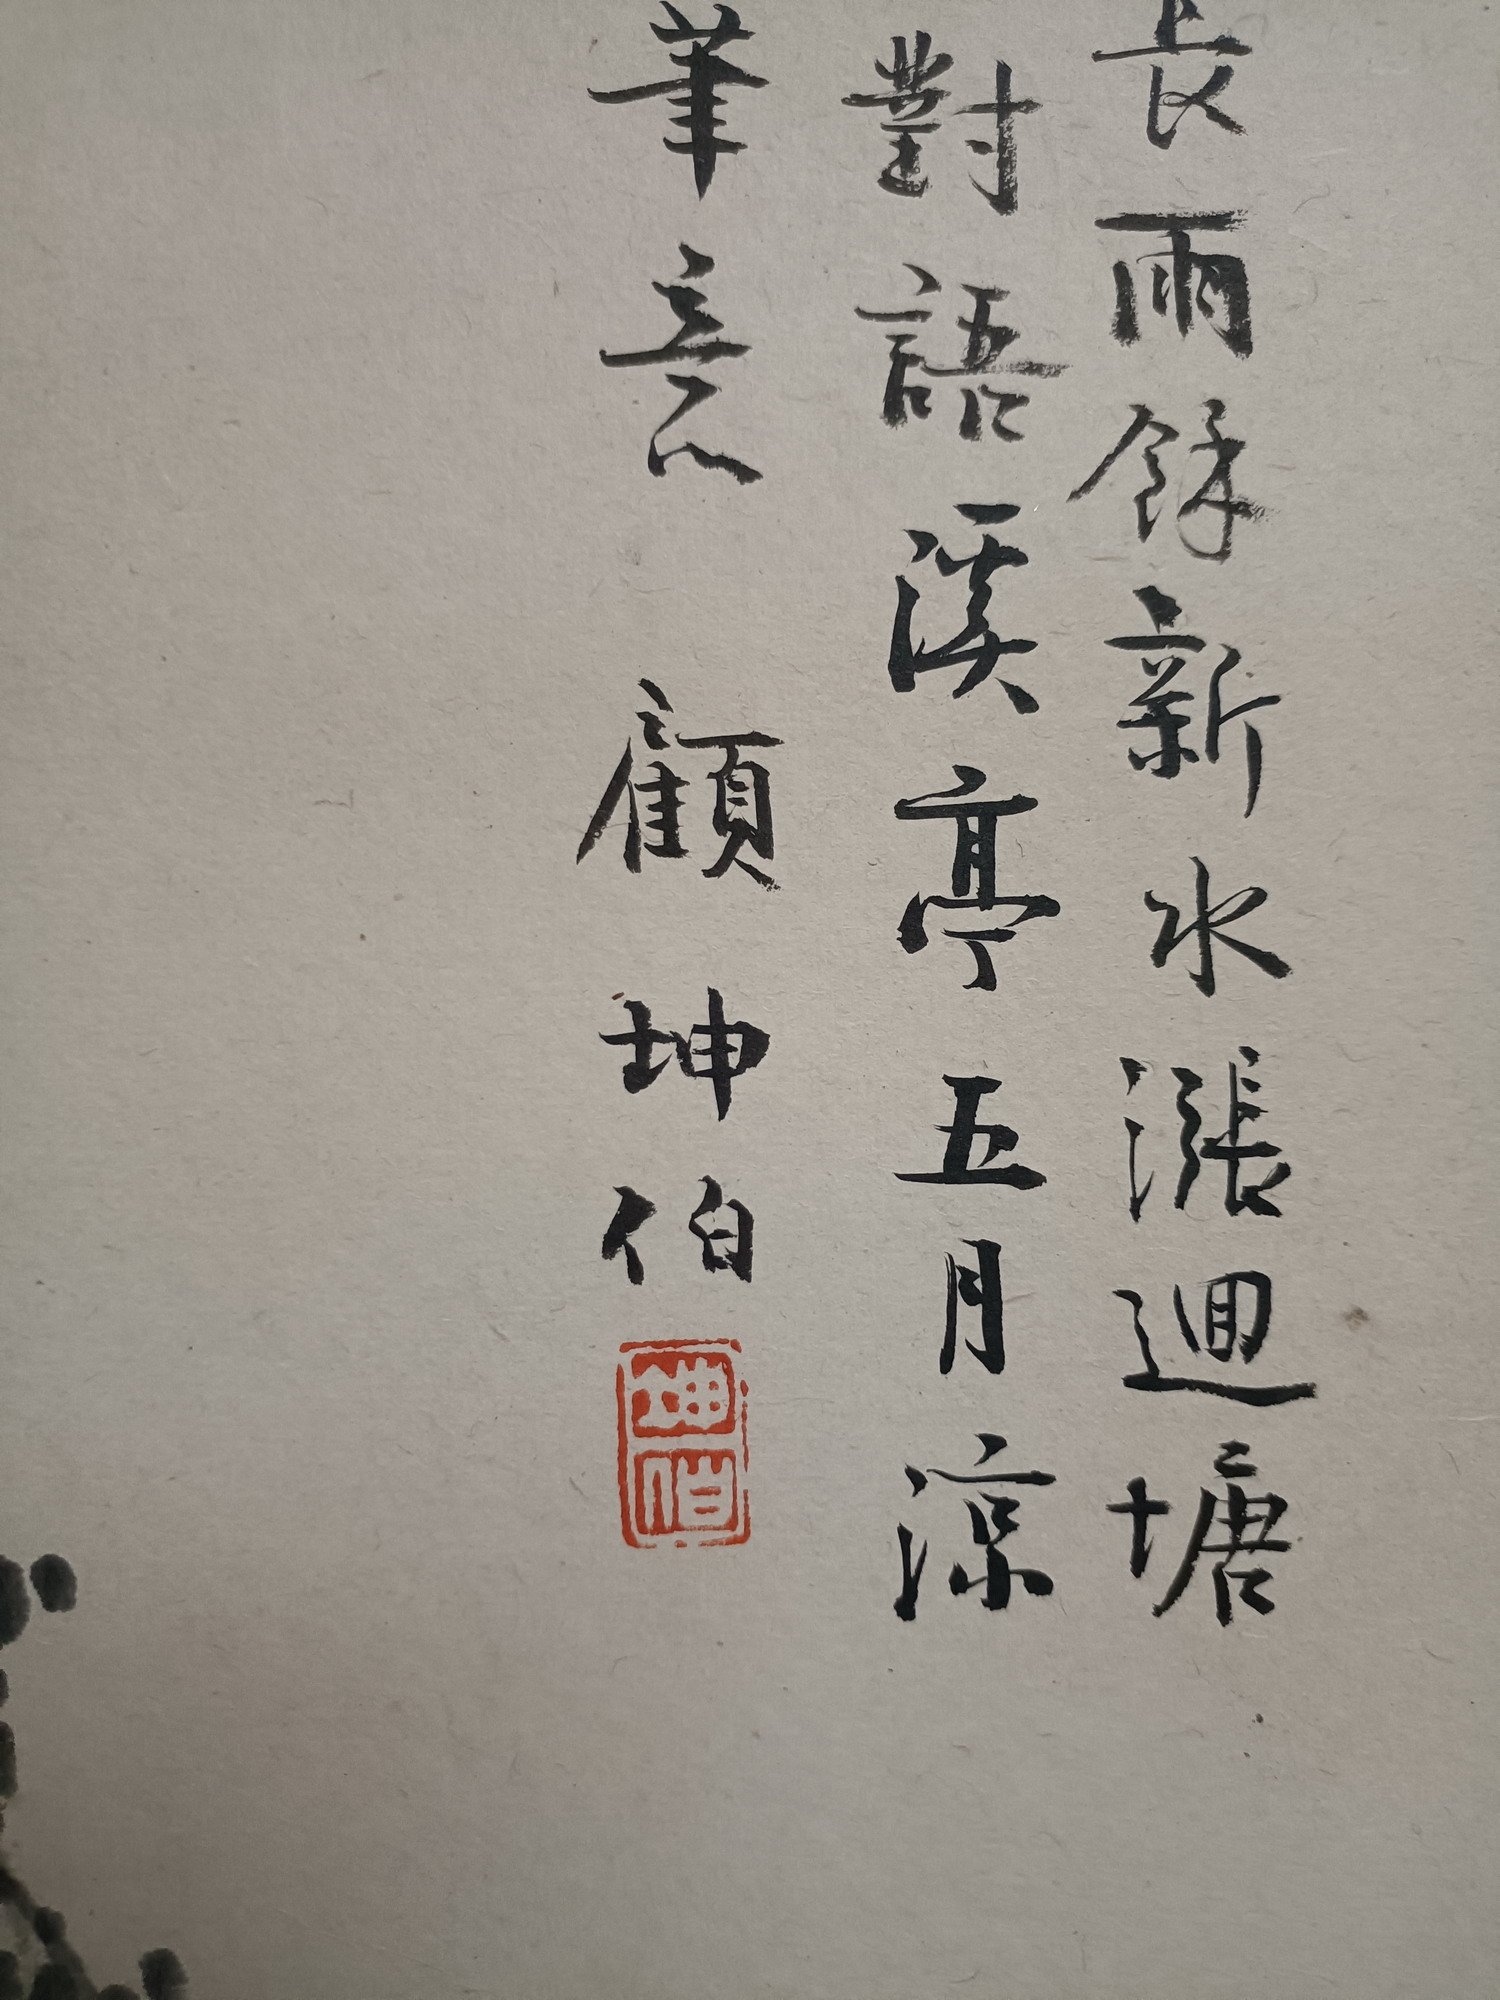 長雨餘新水漲迴塘
對語溪亭五月涼
筆意 顧坤伯
坤伯